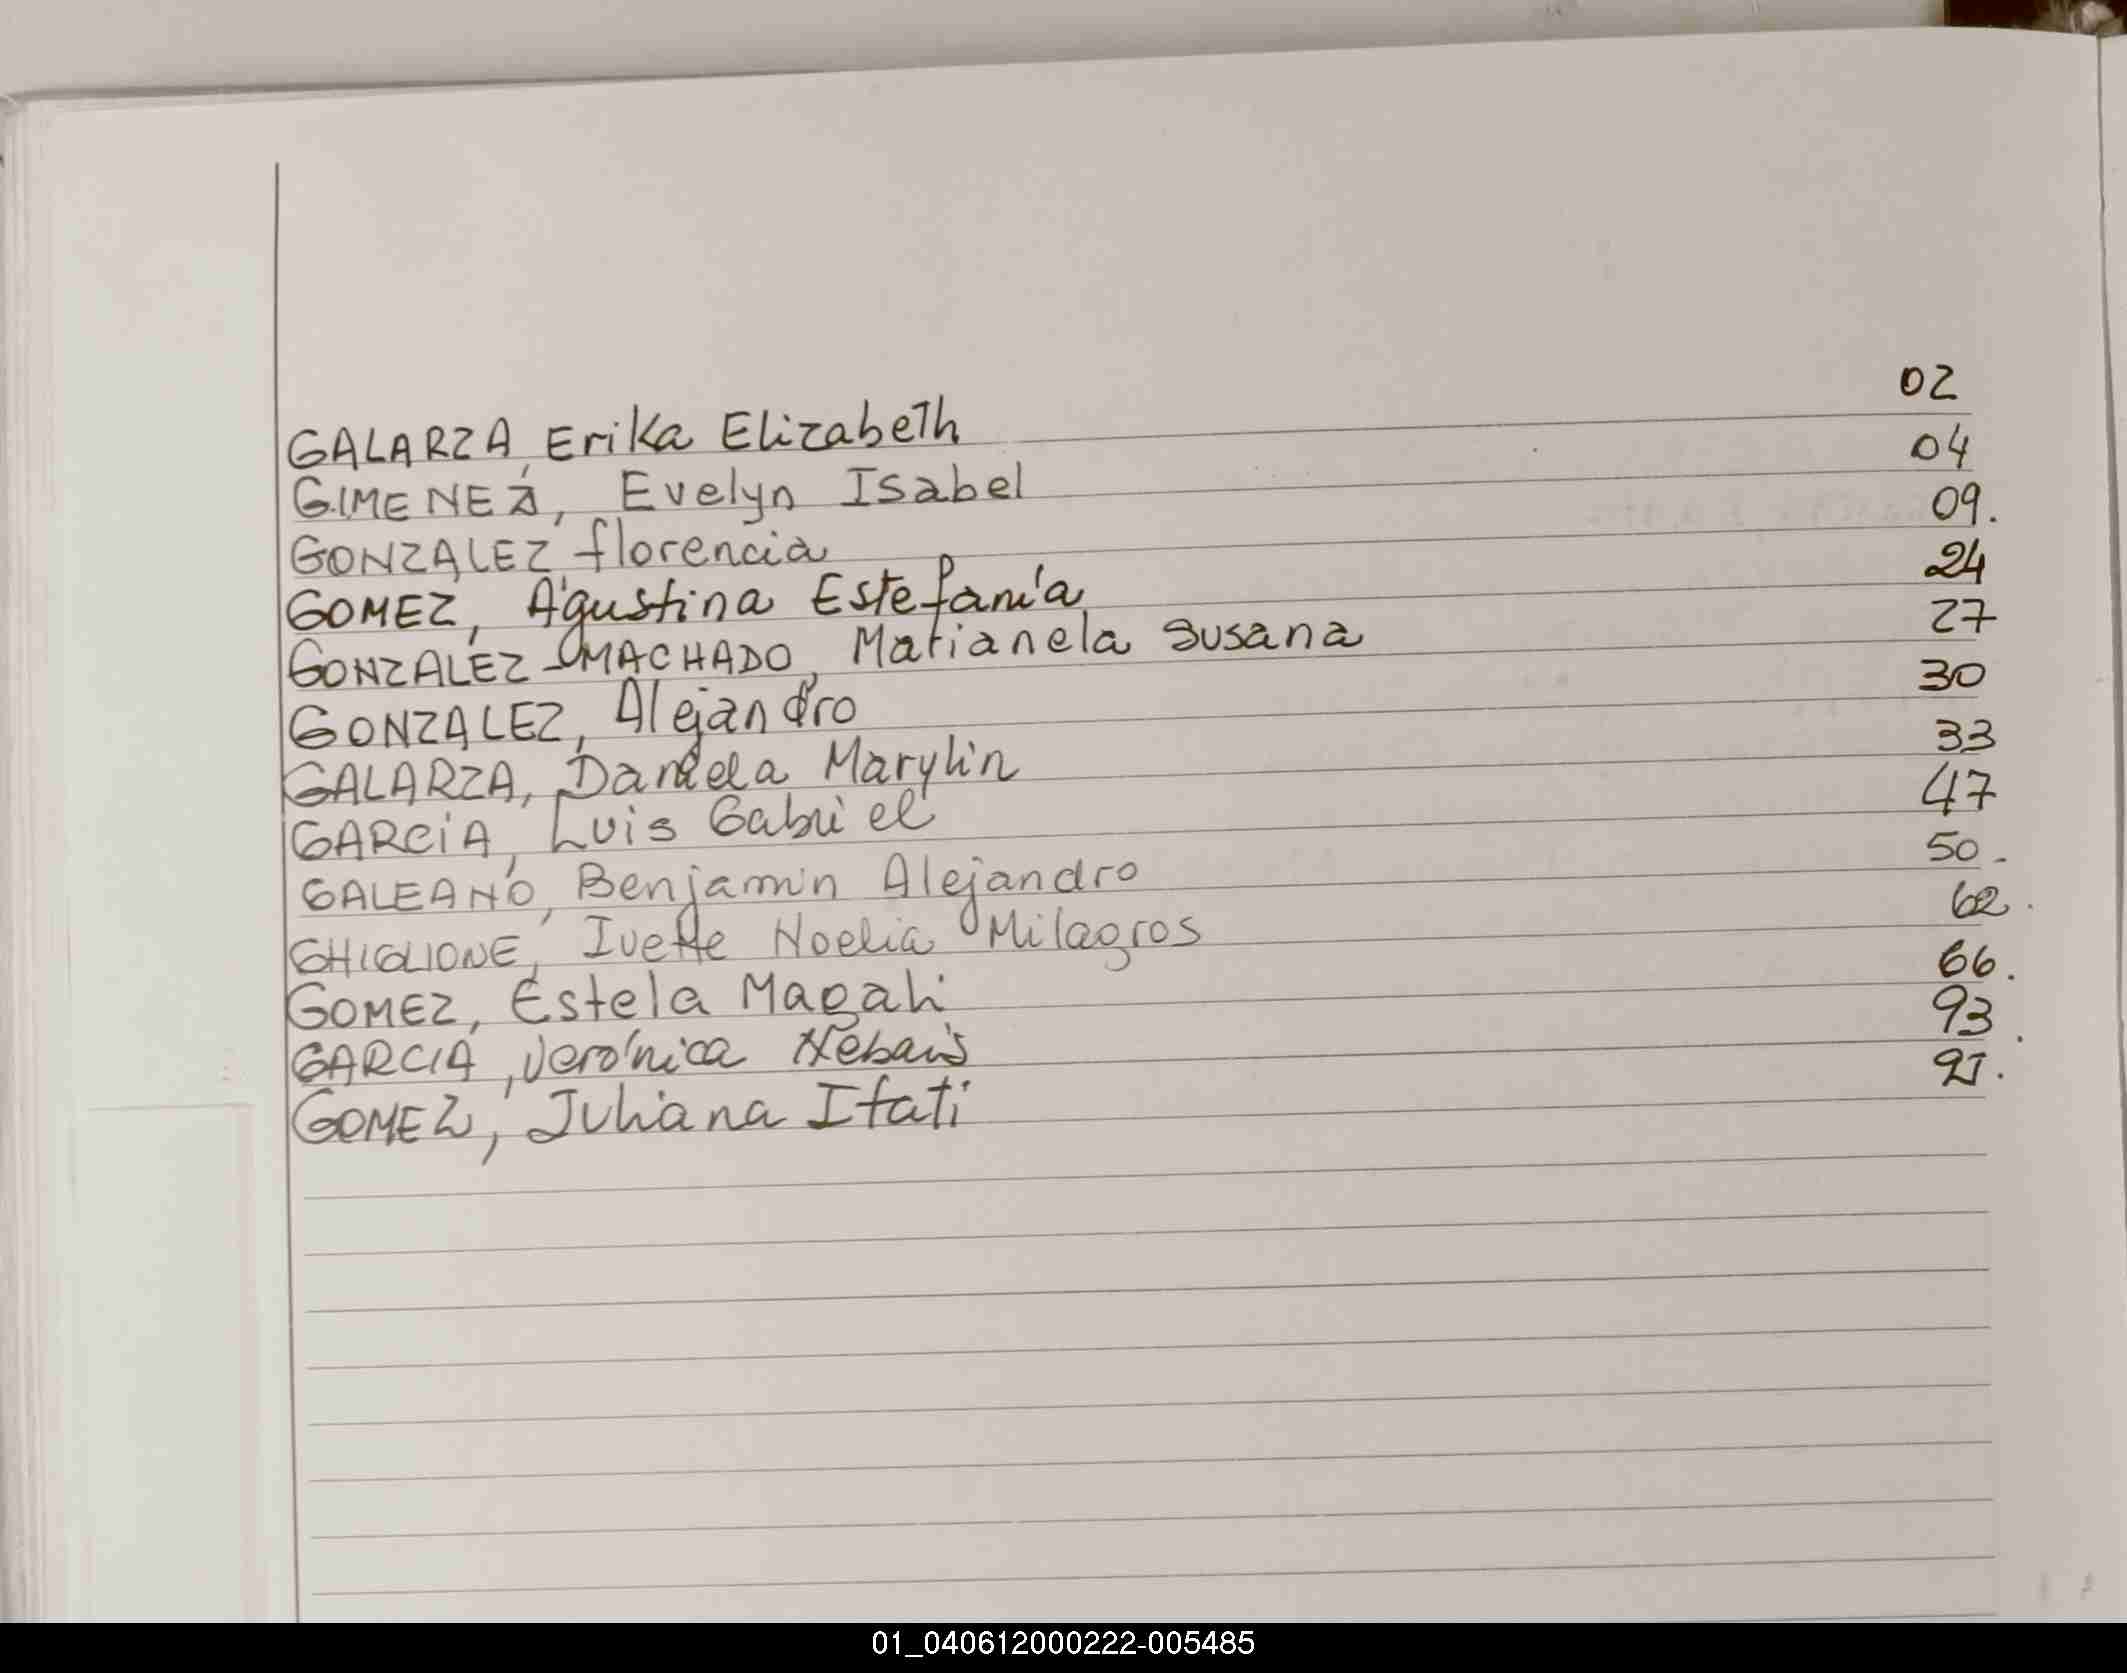 GALARZA, Erika Elizabeth 02
GIMENEZ, Evelyn Isabel 04
GONZALEZ florencia 09.
GOMEZ, Agustina Estefanía 24
GONZALEZ-MACHADO, Marianela Susana 27
GONZALEZ, Alejandro 30
GALARZA, Daniela Marylin 33
GARCíA, Luis Gabriel 47
GALEANO, Benjamin Alejandro 50.
GHIGLIONE, Ivette Noelia Milagros 62.
GOMEZ, Estela Magali 66.
GARCIA, Verónica 93.
GOMEZ, Juliana Itati
01_040612000222-005485